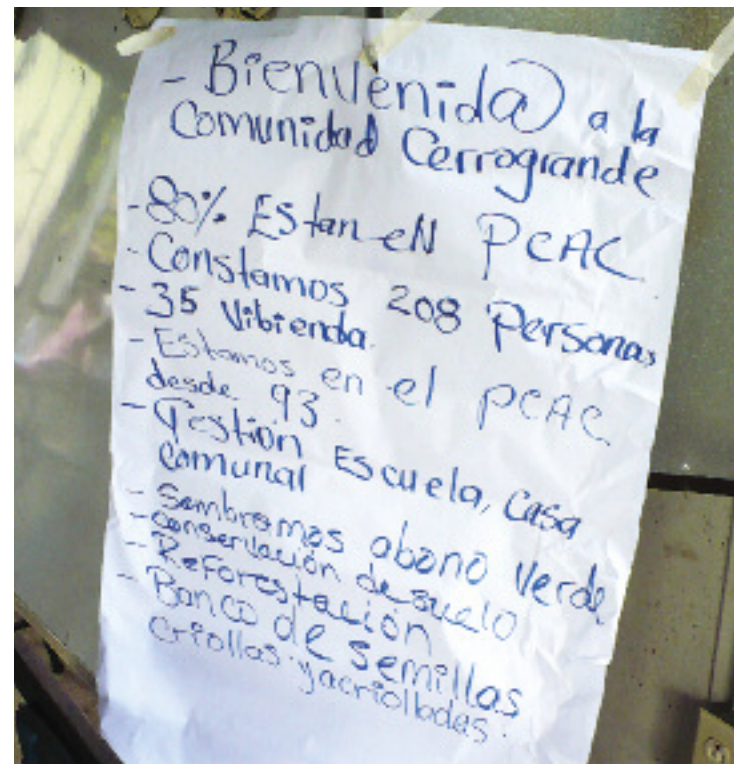 - Bienvenid@ a la
Comunidad Cerrogrande
- 80% Estan eN PCAC
- Constamos 208 Personas
- 35 Vibienda.
- Estamos en el PCAC
desde 93.
- Gestión Escuela, Casa
Comunal
- Sembramos abono Verde
- Conservación de suelo
- Reforestacion
- Banco de semillas
criollas y acriolladas.